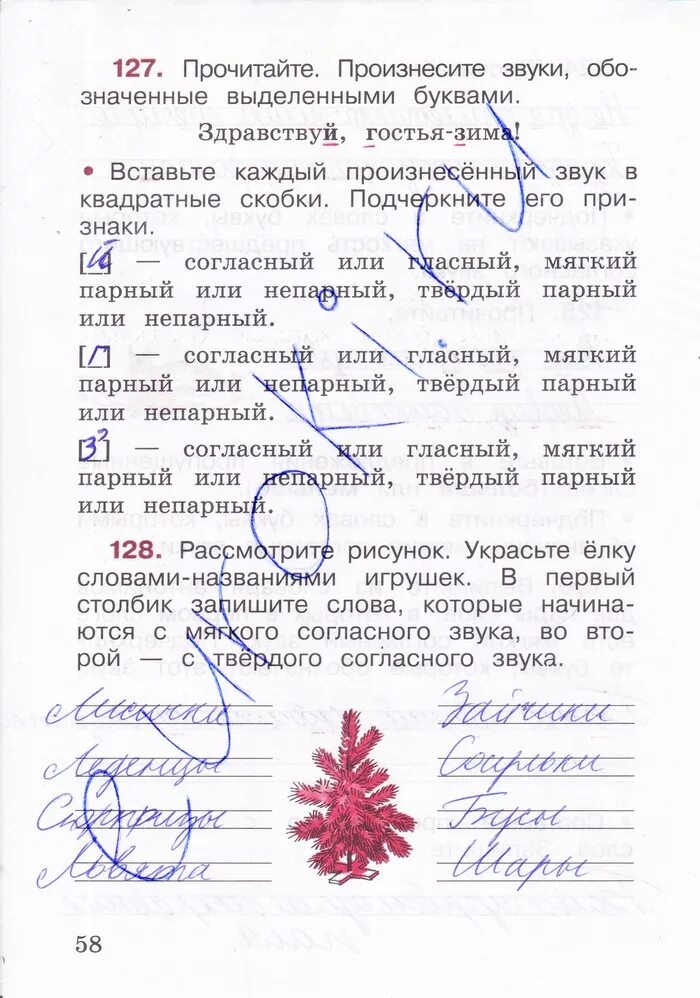 127. Прочитайте. Произнесите звуки, обо-
значенные выделенными буквами.
Здравствуй, гостья-зима!
• Вставьте каждый произнесённый звук в
квадратные скобки. Подчеркните его при-
знаки.
[й] — согласный или гласный, мягкий
парный или непарный, твёрдый парный
или непарный.
[г] — согласный или гласный, мягкий
парный или непарный, твёрдый парный
или непарный.
[з'] — согласный или гласный, мягкий
парный или непарный, твёрдый парный
или непарный.
128. Рассмотрите рисунок. Украсьте ёлку
словами-названиями игрушек. В первый
столбик запишите слова, которые начина-
ются с мягкого согласного звука, во вто-
рой — с твёрдого согласного звука.
Лисички
Леденцы
Сюрпризы
Зайчики
Сосульки
Бусы
Шары
58